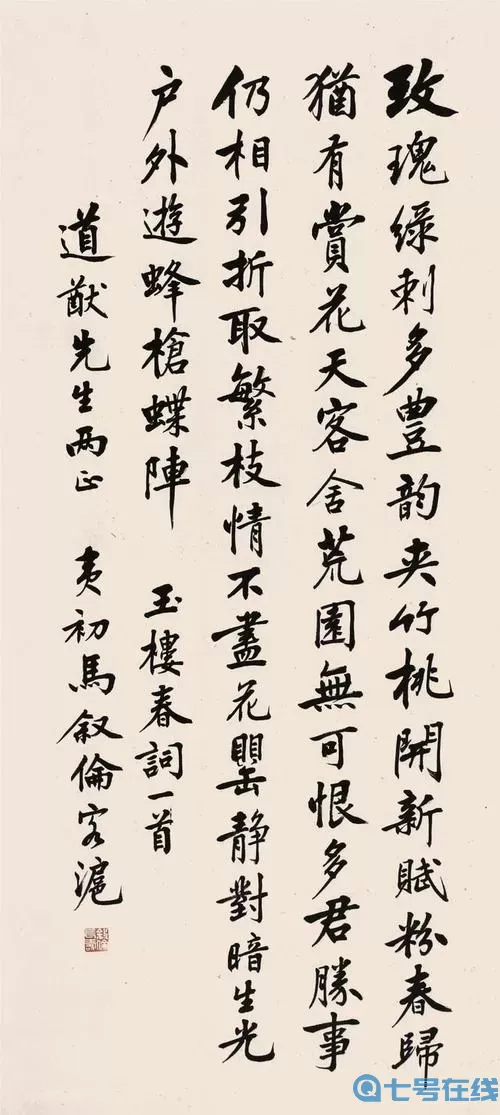 玫瑰綠刺多豊韵夾竹桃開新賦粉春歸
猶有賞花天客舍荒園無可恨多君勝事
仍相引折取繁枝情不盡花罌静對暗生光
户外遊蜂槍蝶陣 玉樓春詞一首
道猷先生兩正 夷初馬叙倫客滬
七号在线